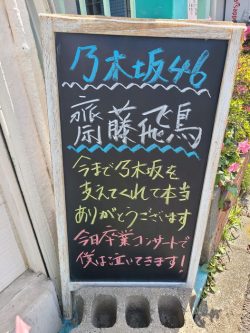 乃木坂46
齋藤飛鳥
今まで乃木坂を
支えてくれて本当
ありがとうございます
今日卒業コンサートで
僕は泣いてきます！